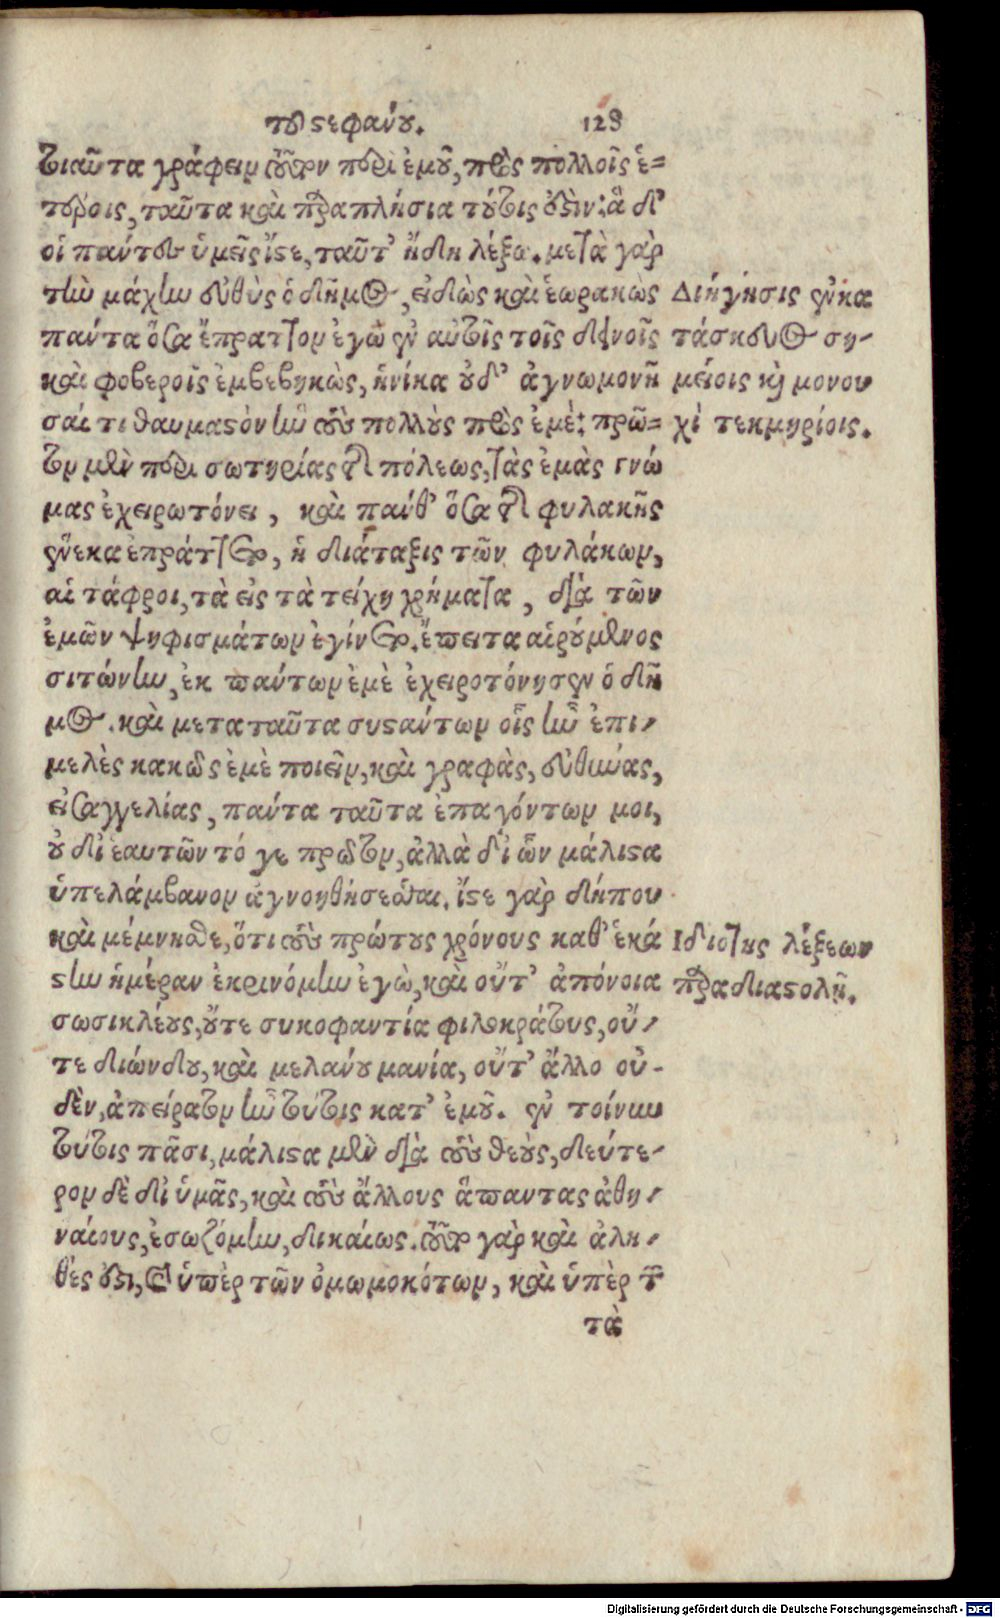 τοῦ στεφάνου. 128
τοιαῦτα γράφειν τοῦτον περὶ ἐμοῦ, πρὸς πολλοῖς ἑ=
τέροις, ταῦτα καὶ παραπλήσια τούτοις ἐστίν: ἃ δ'
οἱ πάντες ὑμεῖς ἴστε, ταῦτ' ἤδη λέξω. μετὰ γὰρ
τὴν μάχην εὐθὺς ὁ δῆμος, εἰδὼς καὶ ἑωρακὼς
πάντα ὅσα ἔπραττον ἐγὼ ἐν αὐτοῖς τοῖς δεινοῖς
καὶ φοβεροῖς ἐμβεβηκὼς, ἡνίκα οὐδ' ἀγνωμονῆ
σαί τι θαυμαστὸν ἦν τοὺς πολλοὺς πρὸς ἐμέ: πρῶ=
τον μὲν περὶ σωτηρίας τῆς πόλεως, τὰς ἐμὰς γνώ
μας ἐχειρωτόνει, καὶ πάνθ' ὅσα τῆς φυλακῆς
ἕνεκα ἐπράττετο, ἡ διάταξις τῶν φυλάκων,
αἱ τάφροι, τὰ εἰς τὰ τείχη χρήματα, διὰ τῶν
ἐμῶν ψηφισμάτων ἐγίνετο. ἔπειτα αἱρούμενος
σιτώνην, ἐκ πάντων ἐμὲ ἐχειροτόνησεν ὁ δῆ
μος. καὶ μετα ταῦτα συστάντων οἷς ἦν ἐπι-
μελὲς κακῶς ἐμὲ ποιεῖν, καὶ γραφὰς, εὐθύνας,
εἰσαγγελίας, πάντα ταῦτα ἐπαγόντων μοι,
οὐ δι' ἑαυτῶν τό γε πρῶτον, ἀλλὰ δι' ὧν μάλιστα
ὑπελάμβανον ἀγνοηθήσεσθαι. ἴστε γὰρ δήπου
καὶ μέμνησθε, ὅτι τοὺς πρώτους χρόνους καθ' ἑκά
στην ἡμέραν ἐκρινόμην ἐγὼ, καὶ οὔτ' ἀπόνοια
σωσικλέους, οὔτε συκοφαντία φιλοκράτους, οὔ-
τε διώνδου, καὶ μελάνου μανία, οὔτ' ἄλλο οὐ-
δὲν, ἀπείρατον ἦν τούτοις κατ' ἐμοῦ. ἐν τοίνυν
τούτοις πᾶσι, μάλιστα μὲν διὰ τοὺς θεοὺς, δεύτε-
ρον δὲ δι' ὑμᾶς, καὶ τοὺς ἄλλους ἅπαντας ἀθη-
ναίους, ἐσωζόμην, δικαίως. τοῦτο γὰρ καὶ ἀλη-
θές ἐστι, καὶ ὑπὲρ τῶν ὀμωμοκότων, καὶ ὑπὲρ τῶν
τὰ
Διήγησις ἐν κα
τάσκευος ση-
μείοις καὶ μονου
χὶ τεκμηρίοις.
Ἰδιότης λέξεων
παραδιαστολῆ.
Digitalisierung gefördert durch die Deutsche Forschungsgemeinschaft - DFG